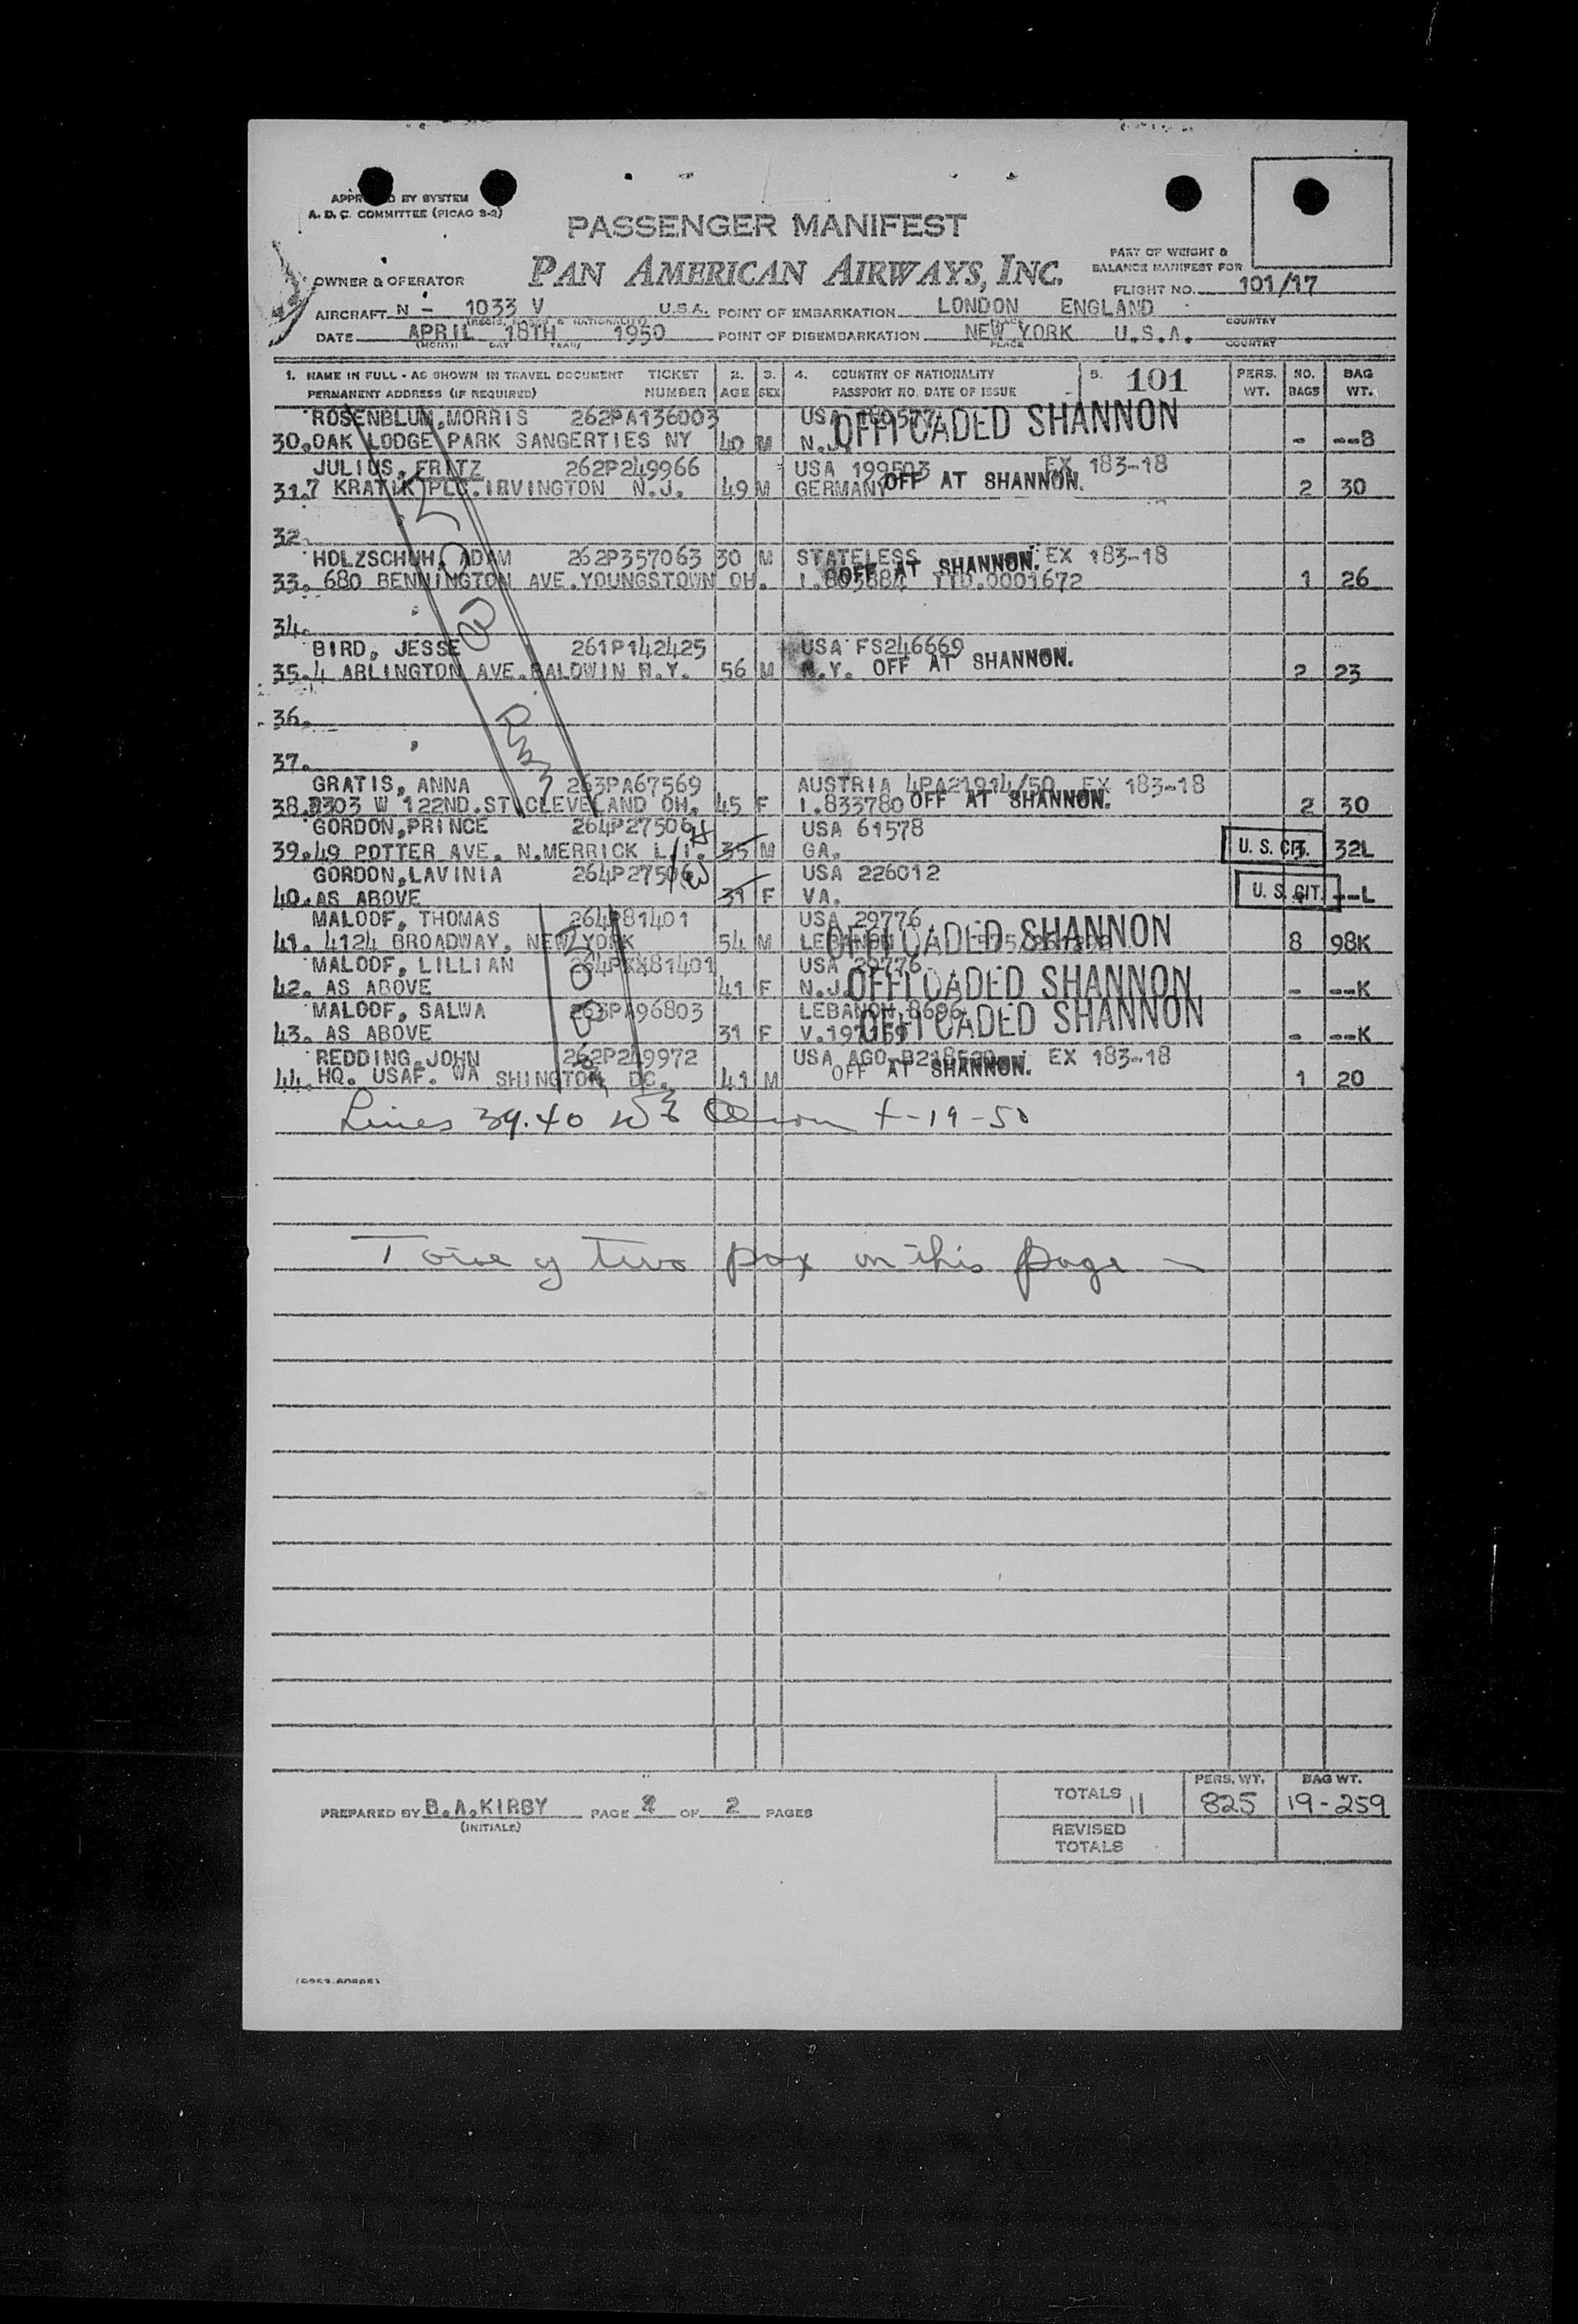 APPROVED BY SYSTEM
A. D. C. COMMITTEE (PICAO S-2)
PASSENGER MANIFEST
PAN AMERICAN AIRWAYS, INC.
PART OF WEIGHT &
BALANCE MANIFEST FOR
OWNER & OPERATOR
FLIGHT NO. 101/17
AIRCRAFT N - 1033 V U.S.A. POINT OF EMBARKATION LONDON ENGLAND
PLACE COUNTRY
DATE APRIL 18TH 1950 POINT OF DISEMBARKATION NEW YORK U.S.A.
(MONTH) DAY YEAR) PLACE COUNTRY
1. NAME IN FULL - AS SHOWN IN TRAVEL DOCUMENT TICKET 2. 3. 4. COUNTRY OF NATIONALITY 5. 101 PERS. NO. BAG
PERMANENT ADDRESS (IF REQUIRED) NUMBER AGE SEX PASSPORT NO. DATE OF ISSUE WT. BAGS WT.
ROSENBLUM, MORRIS 262PA136003 USA
OFFLOADED SHANNON
30. OAK LODGE PARK SANGERTIES NY 40 M N.J. - ---B
JULIUS, FRITZ 262P249966 USA 199503 EX 183-18
31. 7 KRATIK PLC. IRVINGTON N.J. 49 M GERMANY OFF AT SHANNON. 2 30
32.
HOLZSCHUH, ADAM 262P357063 30 M STATELESS EX 183-18
OFF AT SHANNON.
33. 680 BENNINGTON AVE. YOUNGSTOWN OH. TTD.0001672 1 26
34.
BIRD, JESSE 261P142425 USA FS246669
35. 4 ARLINGTON AVE. BALDWIN N.Y. 56 M N.Y. OFF AT SHANNON. 2 23
36.
37.
GRATIS, ANNA 263PA67569 AUSTRIA 4PA21914/50 EX 183-18
38. 3303 W 122ND.ST CLEVELAND OH. 45 F I.833780 OFF AT SHANNON. 2 30
GORDON, PRINCE 264P27506 USA 61578
39. 49 POTTER AVE. N.MERRICK L.I. 35 M GA. U. S. CIT. 32L
GORDON, LAVINIA 264P27506 USA 226012
40. AS ABOVE 31 F VA. U. S. CIT. ---L
MALOOF, THOMAS 264P81401 USA 29776
OFFLOADED SHANNON
41. 4124 BROADWAY, NEW YORK 54 M LEBANON 8 98K
MALOOF, LILLIAN 264PXX81401 USA 29776
OFFLOADED SHANNON
42. AS ABOVE 41 F N.J. - ---K
MALOOF, SALWA 263PA96803 LEBANON 8696
OFFLOADED SHANNON
43. AS ABOVE 31 F - ---K
REDDING, JOHN 262P249972 USA AGO EX 183-18
44. HQ. USAF. WA SHINGTON, DC. 41 M OFF AT SHANNON. 1 20
Lines 39.40 4-19-50
two pax on this page
PREPARED BY B.A.KIRBY PAGE 2 OF 2 PAGES
(INITIALS)
PERS. WT. BAG WT.
TOTALS 11 825 19-259
REVISED
TOTALS